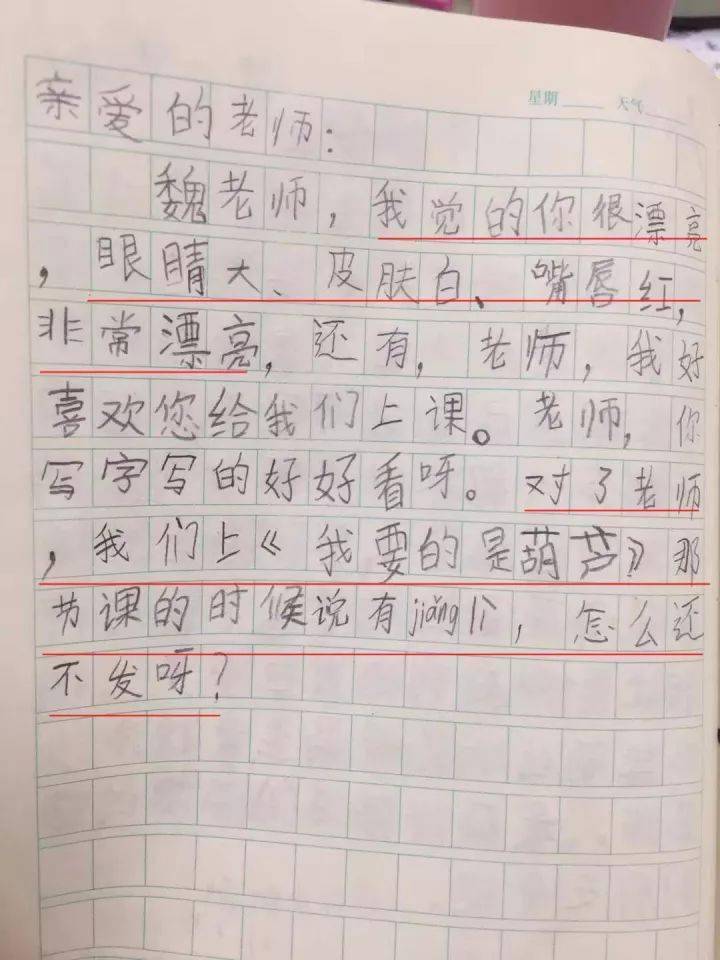 星期 天气
亲爱的老师:
魏老师,我觉的你很漂亮
,眼睛大、皮肤白、嘴唇红,
非常漂亮,还有,老师,我好
喜欢您给我们上课。老师,你
写字写的好好看呀。对了老师
,我们上《我要的是葫芦》那
节课的时候说有jiǎng(,怎么还
不发呀?